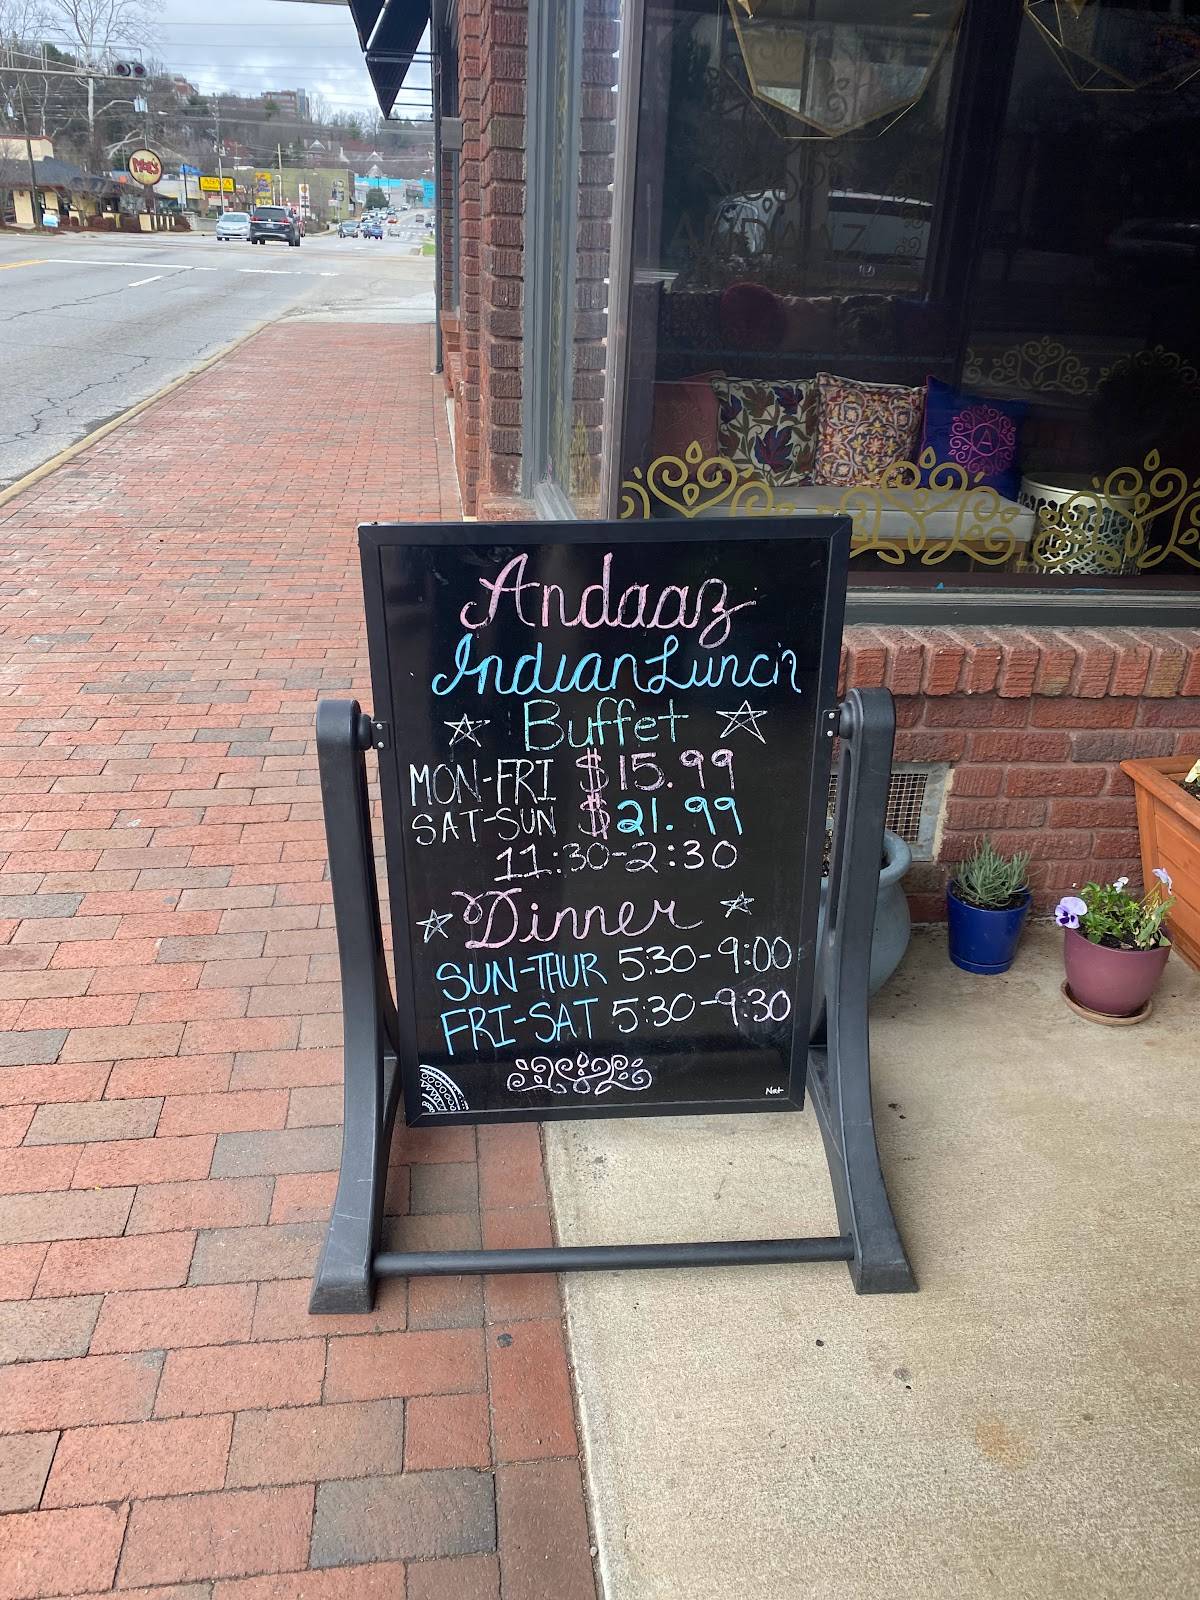 Moe's
ANDAAZ
A
Andaaz
Indian Lunch
Buffet
MON-FRI $15.99
SAT-SUN $21.99
11:30-2:30
Dinner
SUN-THUR 5:30-9:00
FRI-SAT 5:30-9:30
Nat